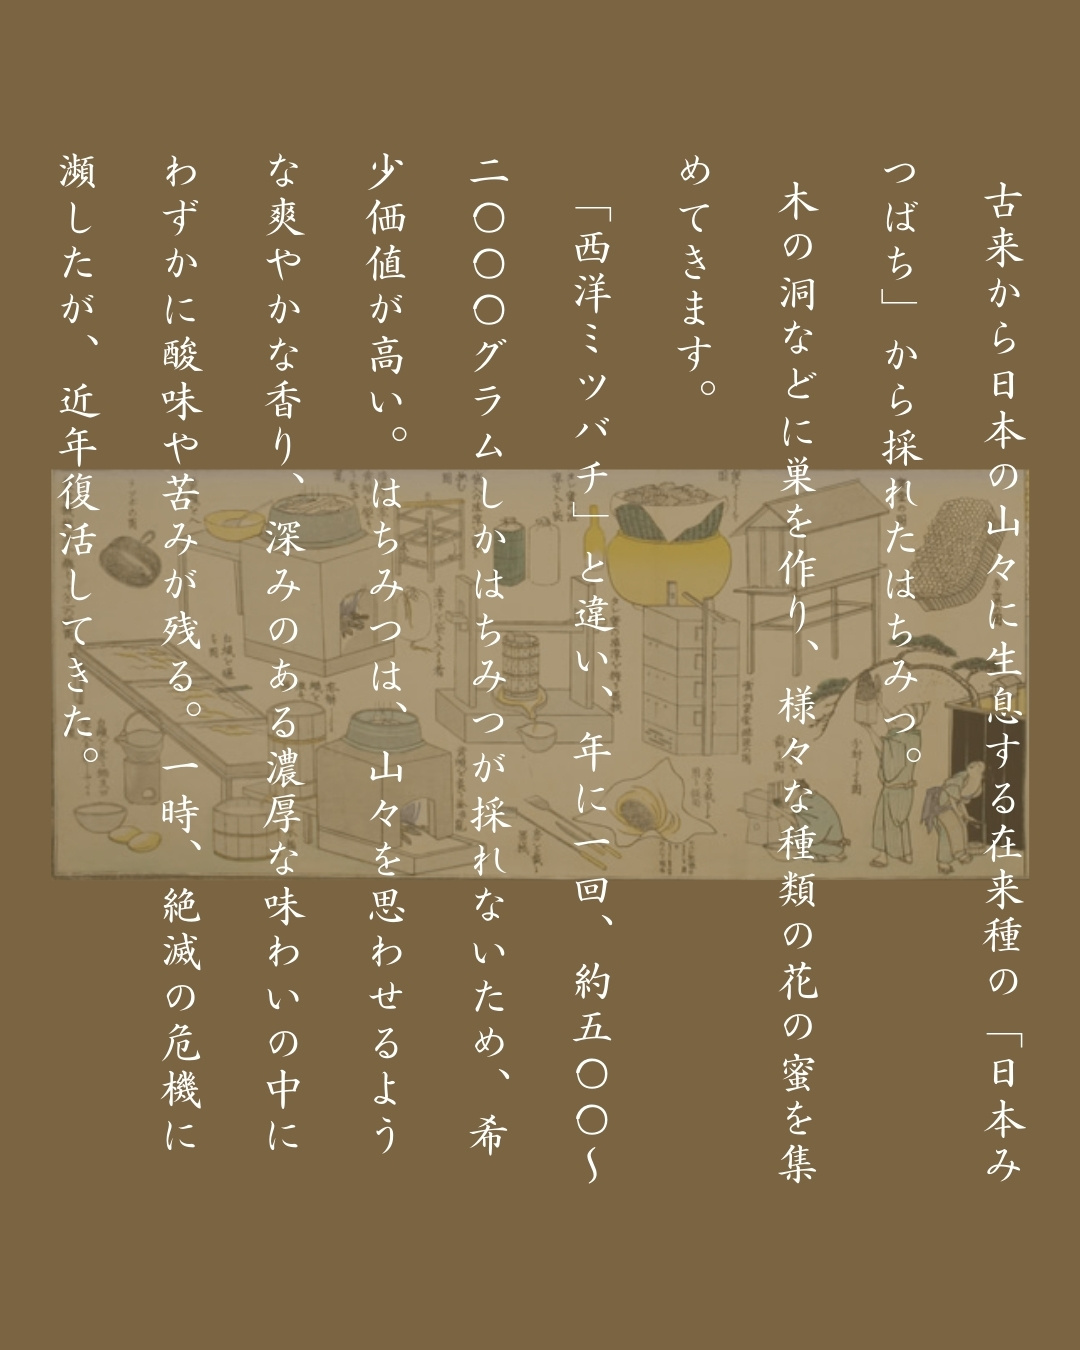 古来から日本の山々に生息する在来種の「日本み
つばち」から採れたはちみつ。
木の洞などに巣を作り、様々な種類の花の蜜を集
めてきます。
「西洋ミツバチ」と違い、年に一回、約五〇〇～
二〇〇〇グラムしかはちみつが採れないため、希
少価値が高い。はちみつは、山々を思わせるよう
な爽やかな香り、深みのある濃厚な味わいの中に
わずかに酸味や苦みが残る。一時、絶滅の危機に
瀕したが、近年復活してきた。